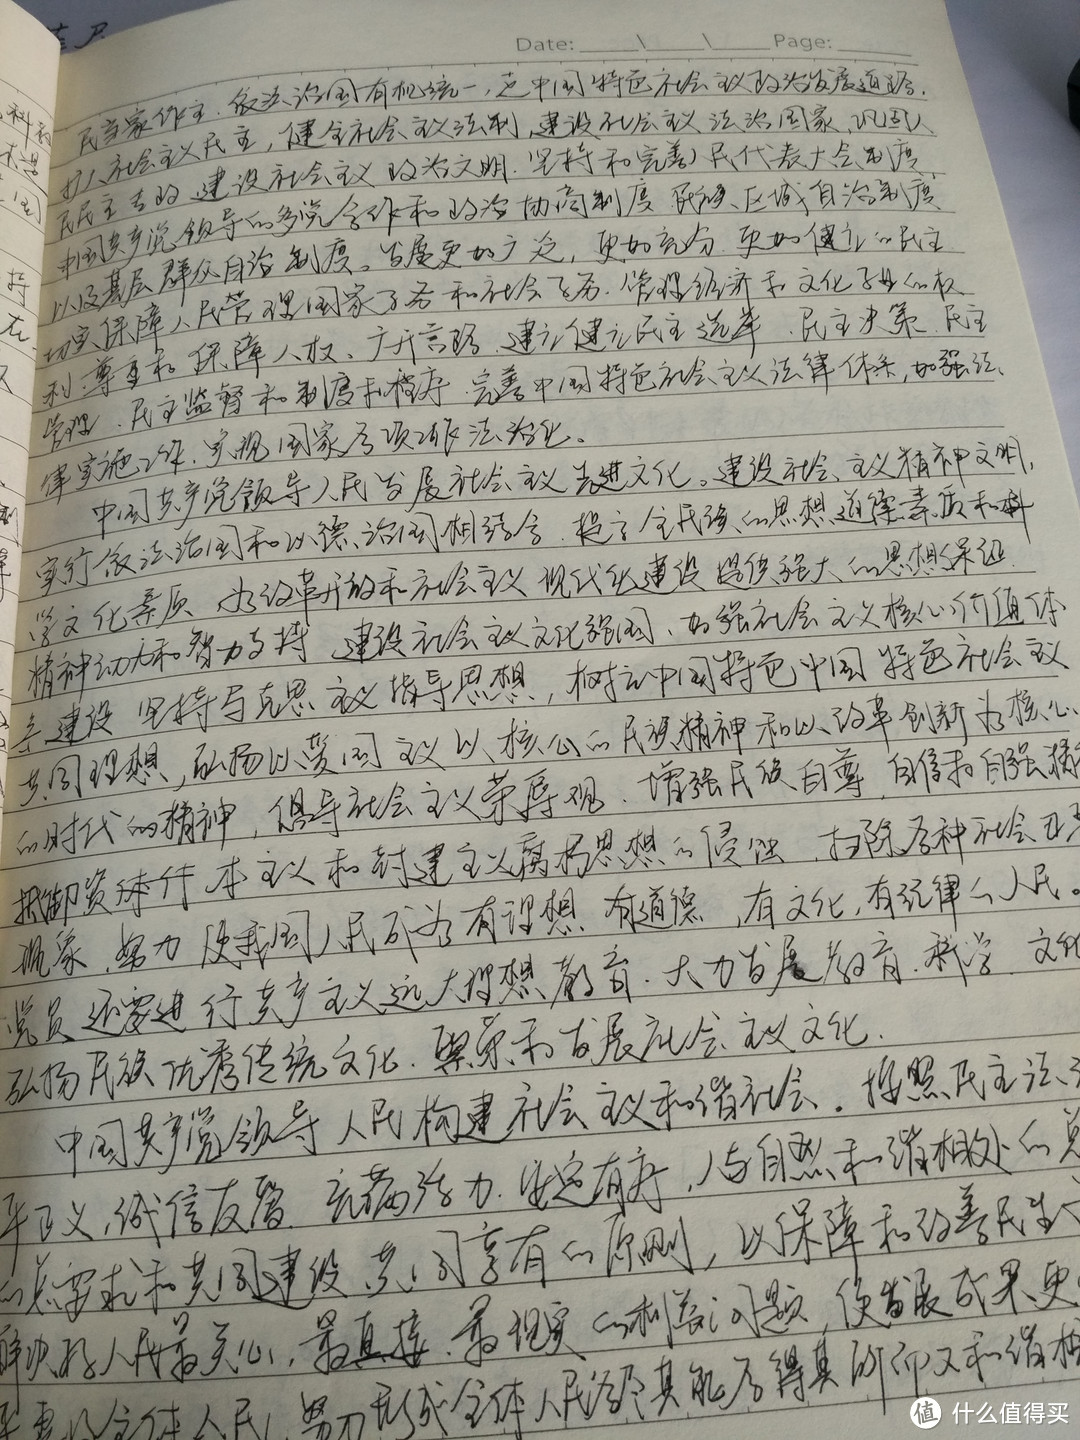 Date: ____\____\____ Page: ____
民当家作主、依法治国有机统一,走中国特色社会主义政治发展道路,
扩大社会主义民主,健全社会主义法制,建设社会主义法治国家,巩固人
民民主专政,建设社会主义政治文明.坚持和完善人民代表大会制度、
中国共产党领导的多党合作和政治协商制度、民族区域自治制度
以及基层群众自治制度。发展更加广泛,更加充分、更加健全的民主.
切实保障人民管理国家事务和社会事务、管理经济和文化事业的权
利.尊重和保障人权、广开言路.建立健全民主选举、民主决策、民主
管理、民主监督和制度和程序.完善中国特色社会主义法律体系,加强法
律实施工作.实现国家各项工作法治化。
中国共产党领导人民发展社会主义先进文化。建设社会主义精神文明,
实行依法治国和以德治国相结合.提高全民族的思想道德素质和科
学文化素质.为改革开放和社会主义现代化建设提供强大的思想保证.
精神动力和智力支持.建设社会主义文化强国、加强社会主义核心价值体
系建设.坚持马克思主义指导思想,树立中国特色中国特色社会主义
共同理想,弘扬以爱国主义以核心的民族精神和以改革创新为核心
的时代的精神,倡导社会主义荣辱观.增强民族自尊、自信和自强精
抵御资本主义和封建主义腐朽思想的侵蚀.扫除各种社会丑
现象.努力使我国人民成为有理想、有道德,有文化,有纪律的人民。
党员还要进行共产主义远大理想教育.大力发展教育、科学、文化
弘扬民族优秀传统文化.繁荣和发展社会主义文化.
中国共产党领导人民构建社会主义和谐社会。按照民主法
平正义,诚信友爱、充满活力、安定有序,人与自然和谐相处的总
的总要求和共同建设、共同享有的原则,以保障和改善民生
解决好人民最关心,最直接.最现实的利益问题,使发展成果更
全体人民,努力形成全体人民各尽其能各得其所而又和谐相
值 什么值得买